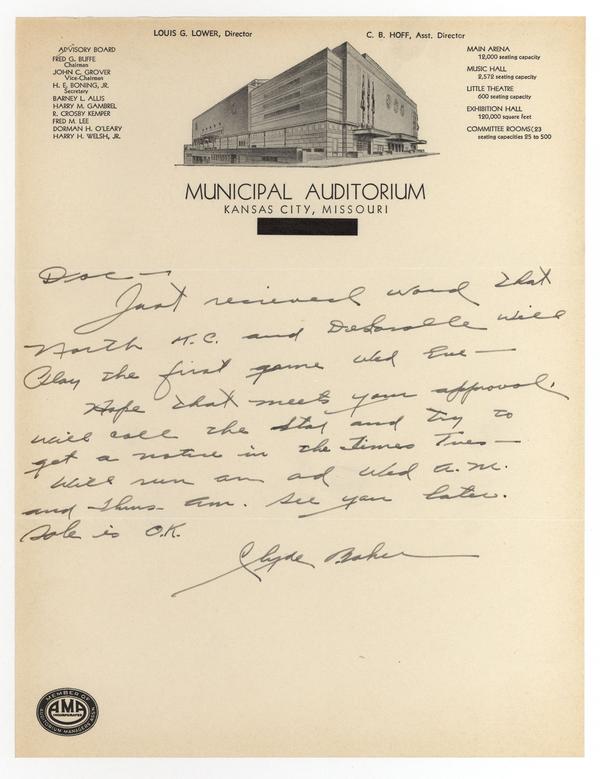 LOUIS G. LOWER, Director
C. B. HOFF, Asst. Director
ADVISORY BOARD
FRED G. BUFFE
Chairman
JOHN C. GROVER
Vice-Chairman
H. E. BONING, JR.
Secretary
BARNEY L. ALLIS
HARRY M. GAMBREL
R. CROSBY KEMPER
FRED M. LEE
DORMAN H. O'LEARY
HARRY H. WELSH, JR.
MAIN ARENA
12,000 seating capacity
MUSIC HALL
2,572 seating capacity
LITTLE THEATRE
600 seating capacity
EXHIBITION HALL
120,000 square feet
COMMITTEE ROOMS(23
seating capacities 25 to 500
MUNICIPAL AUDITORIUM
KANSAS CITY, MISSOURI
Doc —
Just recieved word that
North K.C. and DeLaSalle will
Play the first game Wed Eve —
Hope that meets your approval.
Will call the Star and try to
get a notice in the Times Tues —
Will run an ad Wed A.M.
and Thurs Am. See you later.
Sale is O.K.
Clyde Baker
MEMBER OF
AMA
INCORPORATED
AUDITORIUM MANAGERS ASSN.